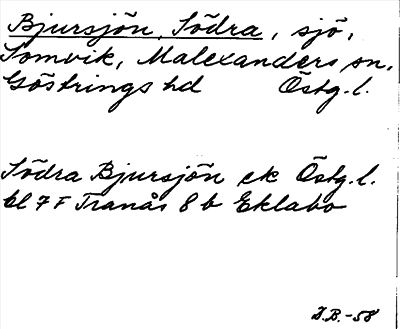 Bjursjön, Södra, sjö,
Tomvik, Malexanders sn,
Göstrings hd Östg. l.
Södra Bjursjön ek Östg. l.
bl 7 F Tranås 8 b Eklabo
I.B. -58